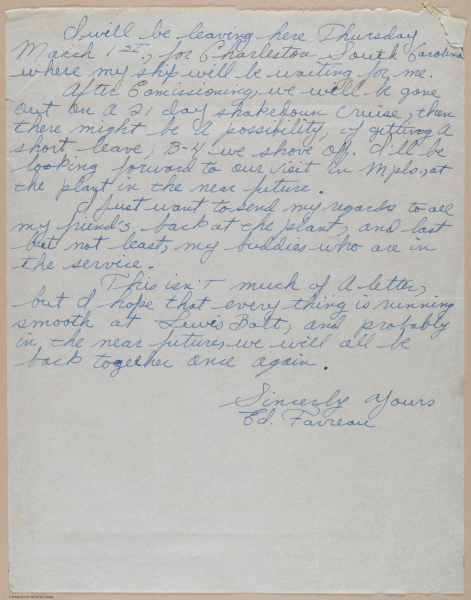 I will be leaving here Thursday
March 1st, for Charleston South Carolina
where my ship will be waiting for me.
After Comissioning, we will be gone
out on a 21 day shakedoun Cruise, then
there might be a possibility, if getting a
short leave, B-4 we shove off. I'll be
looking forward to our visit in Mpls, at
the plant in the near future.
I just want to send my regards to all
my friend's, back at the plant, and last
but not least, my buddies who are in
the service.
This isn't much of a letter,
but I hope that every thing is running
smooth at Lewis Bolt, and probably
in the near future, we will all be
back together once again.
Sincerly Yours
Ed. Favreau